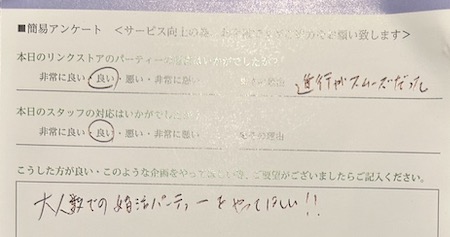 ■簡易アンケート ＜サービス向上の為、お 願い致します＞
本日のリンクストアのパーティー はいかがでしたか？
非常に良い・良い・悪い・非常に悪い の理由 進行がスムーズだった
本日のスタッフの対応はいかがでし
非常に良い・良い・悪い・非常に悪い その理由
こうした方が良い・このような企画をやって ご要望がございましたらご記入ください。
大人数での婚活パーティーをやってほしい!!